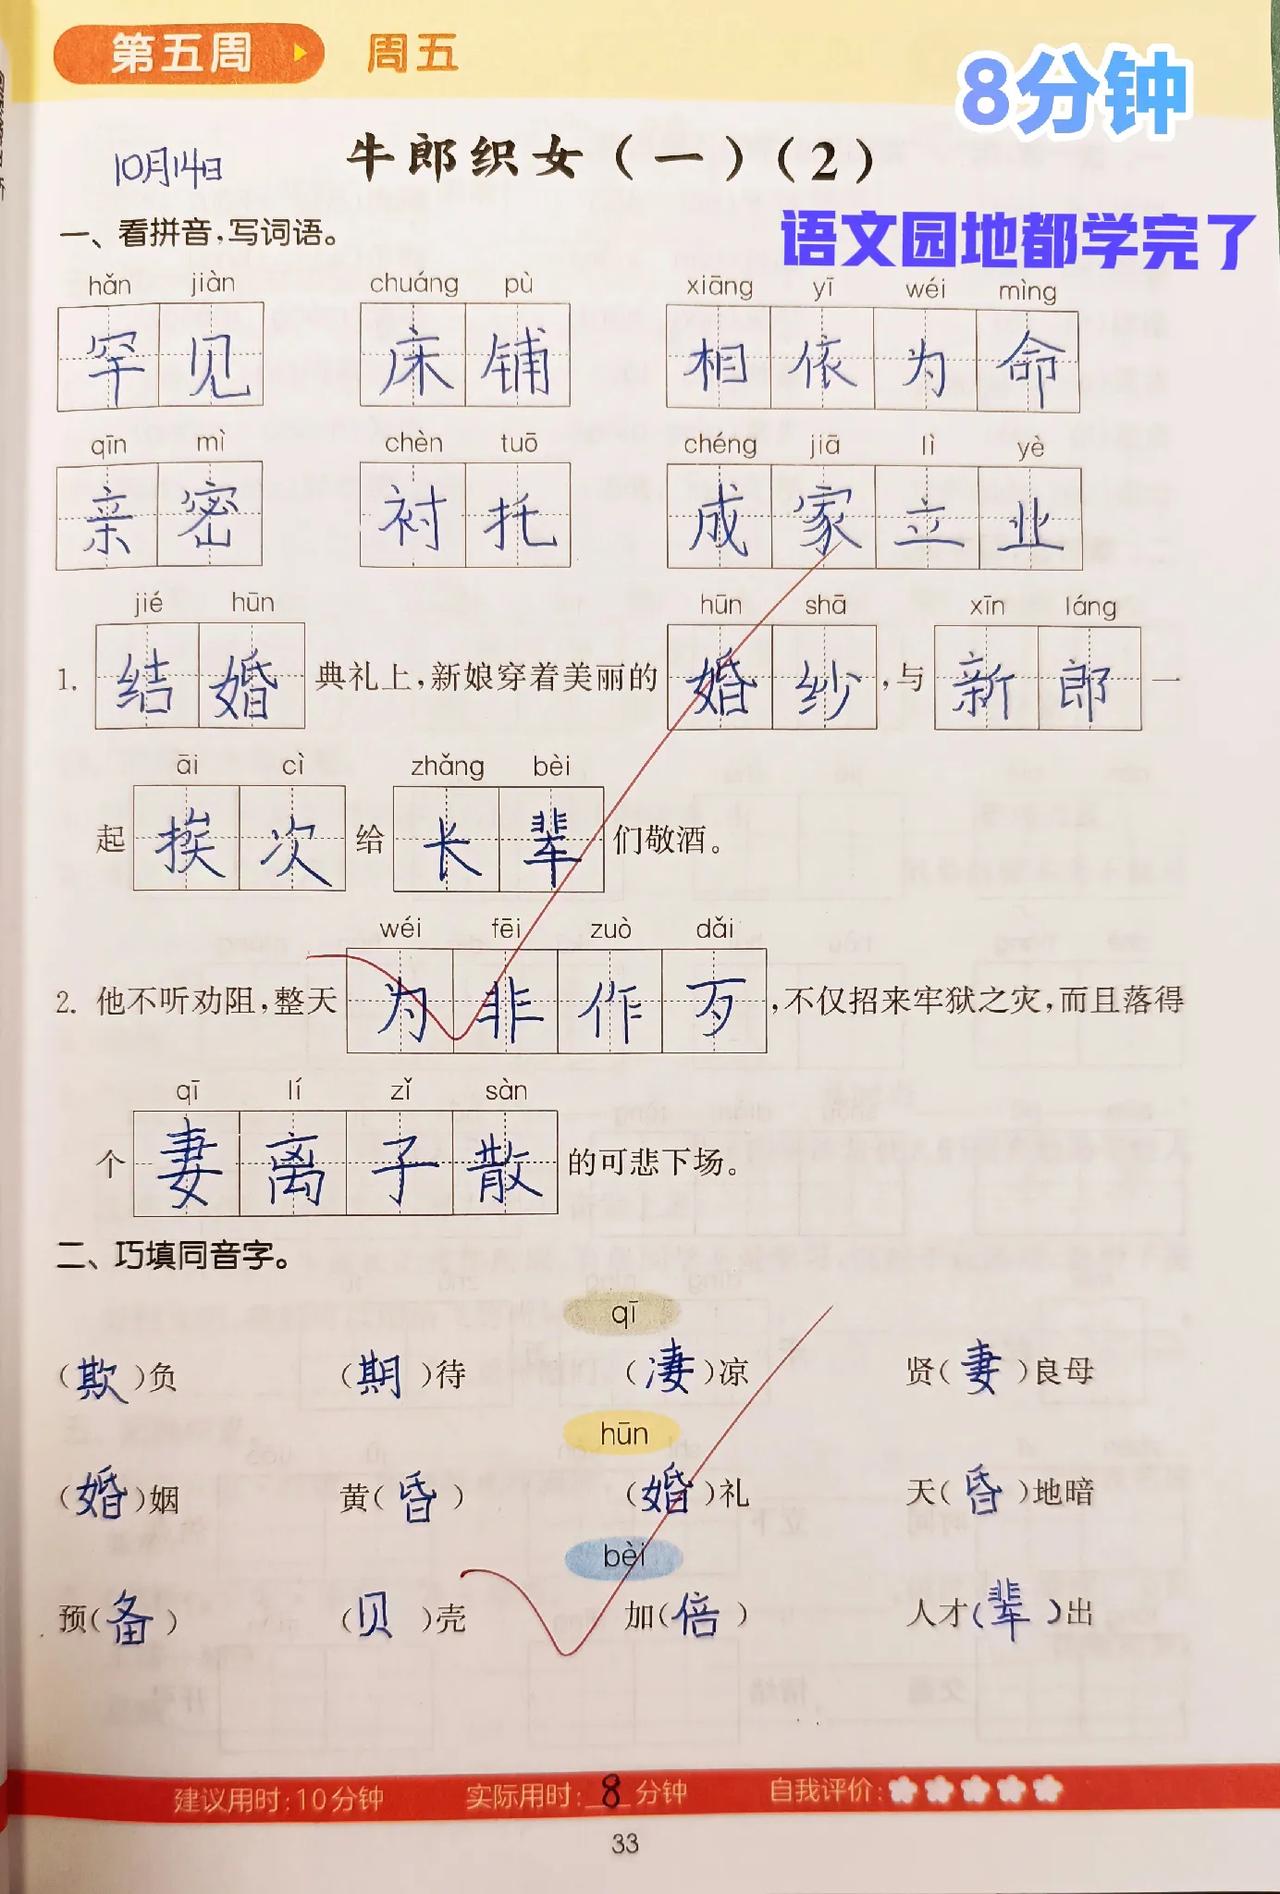 第五周 周五
8分钟
10月14日
牛郎织女(一)(2)
语文园地都学完了
一、看拼音,写词语。
hǎn jiàn chuáng pù xiāng yī wéi mìng
罕见 床铺 相依为命
qīn mì chèn tuō chéng jiā lì yè
亲密 衬托 成家立业
jié hūn hūn shā xīn láng
1. 结婚典礼上,新娘穿着美丽的婚纱,与新郎一
āi cì zhǎng bèi
起挨次给长辈们敬酒。
wéi fēi zuò dǎi
2. 他不听劝阻,整天为非作歹,不仅招来牢狱之灾,而且落得
qī lí zǐ sàn
个妻离子散的可悲下场。
二、巧填同音字。
qī
(欺)负 (期)待 (凄)凉 贤(妻)良母
hūn
(婚)姻 黄(昏) (婚)礼 天(昏)地暗
bèi
预(备) (贝)壳 加(倍) 人才(辈)出
建议用时:10分钟 实际用时:8分钟 自我评价:
33